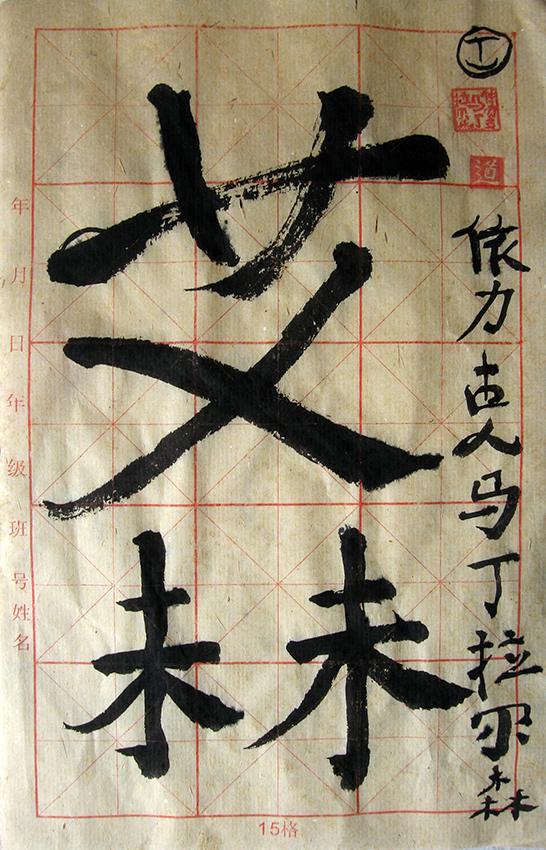 道
依力古人马丁拉尔森
艾
未未
年 月 日 年 级 班 号 姓名
15格